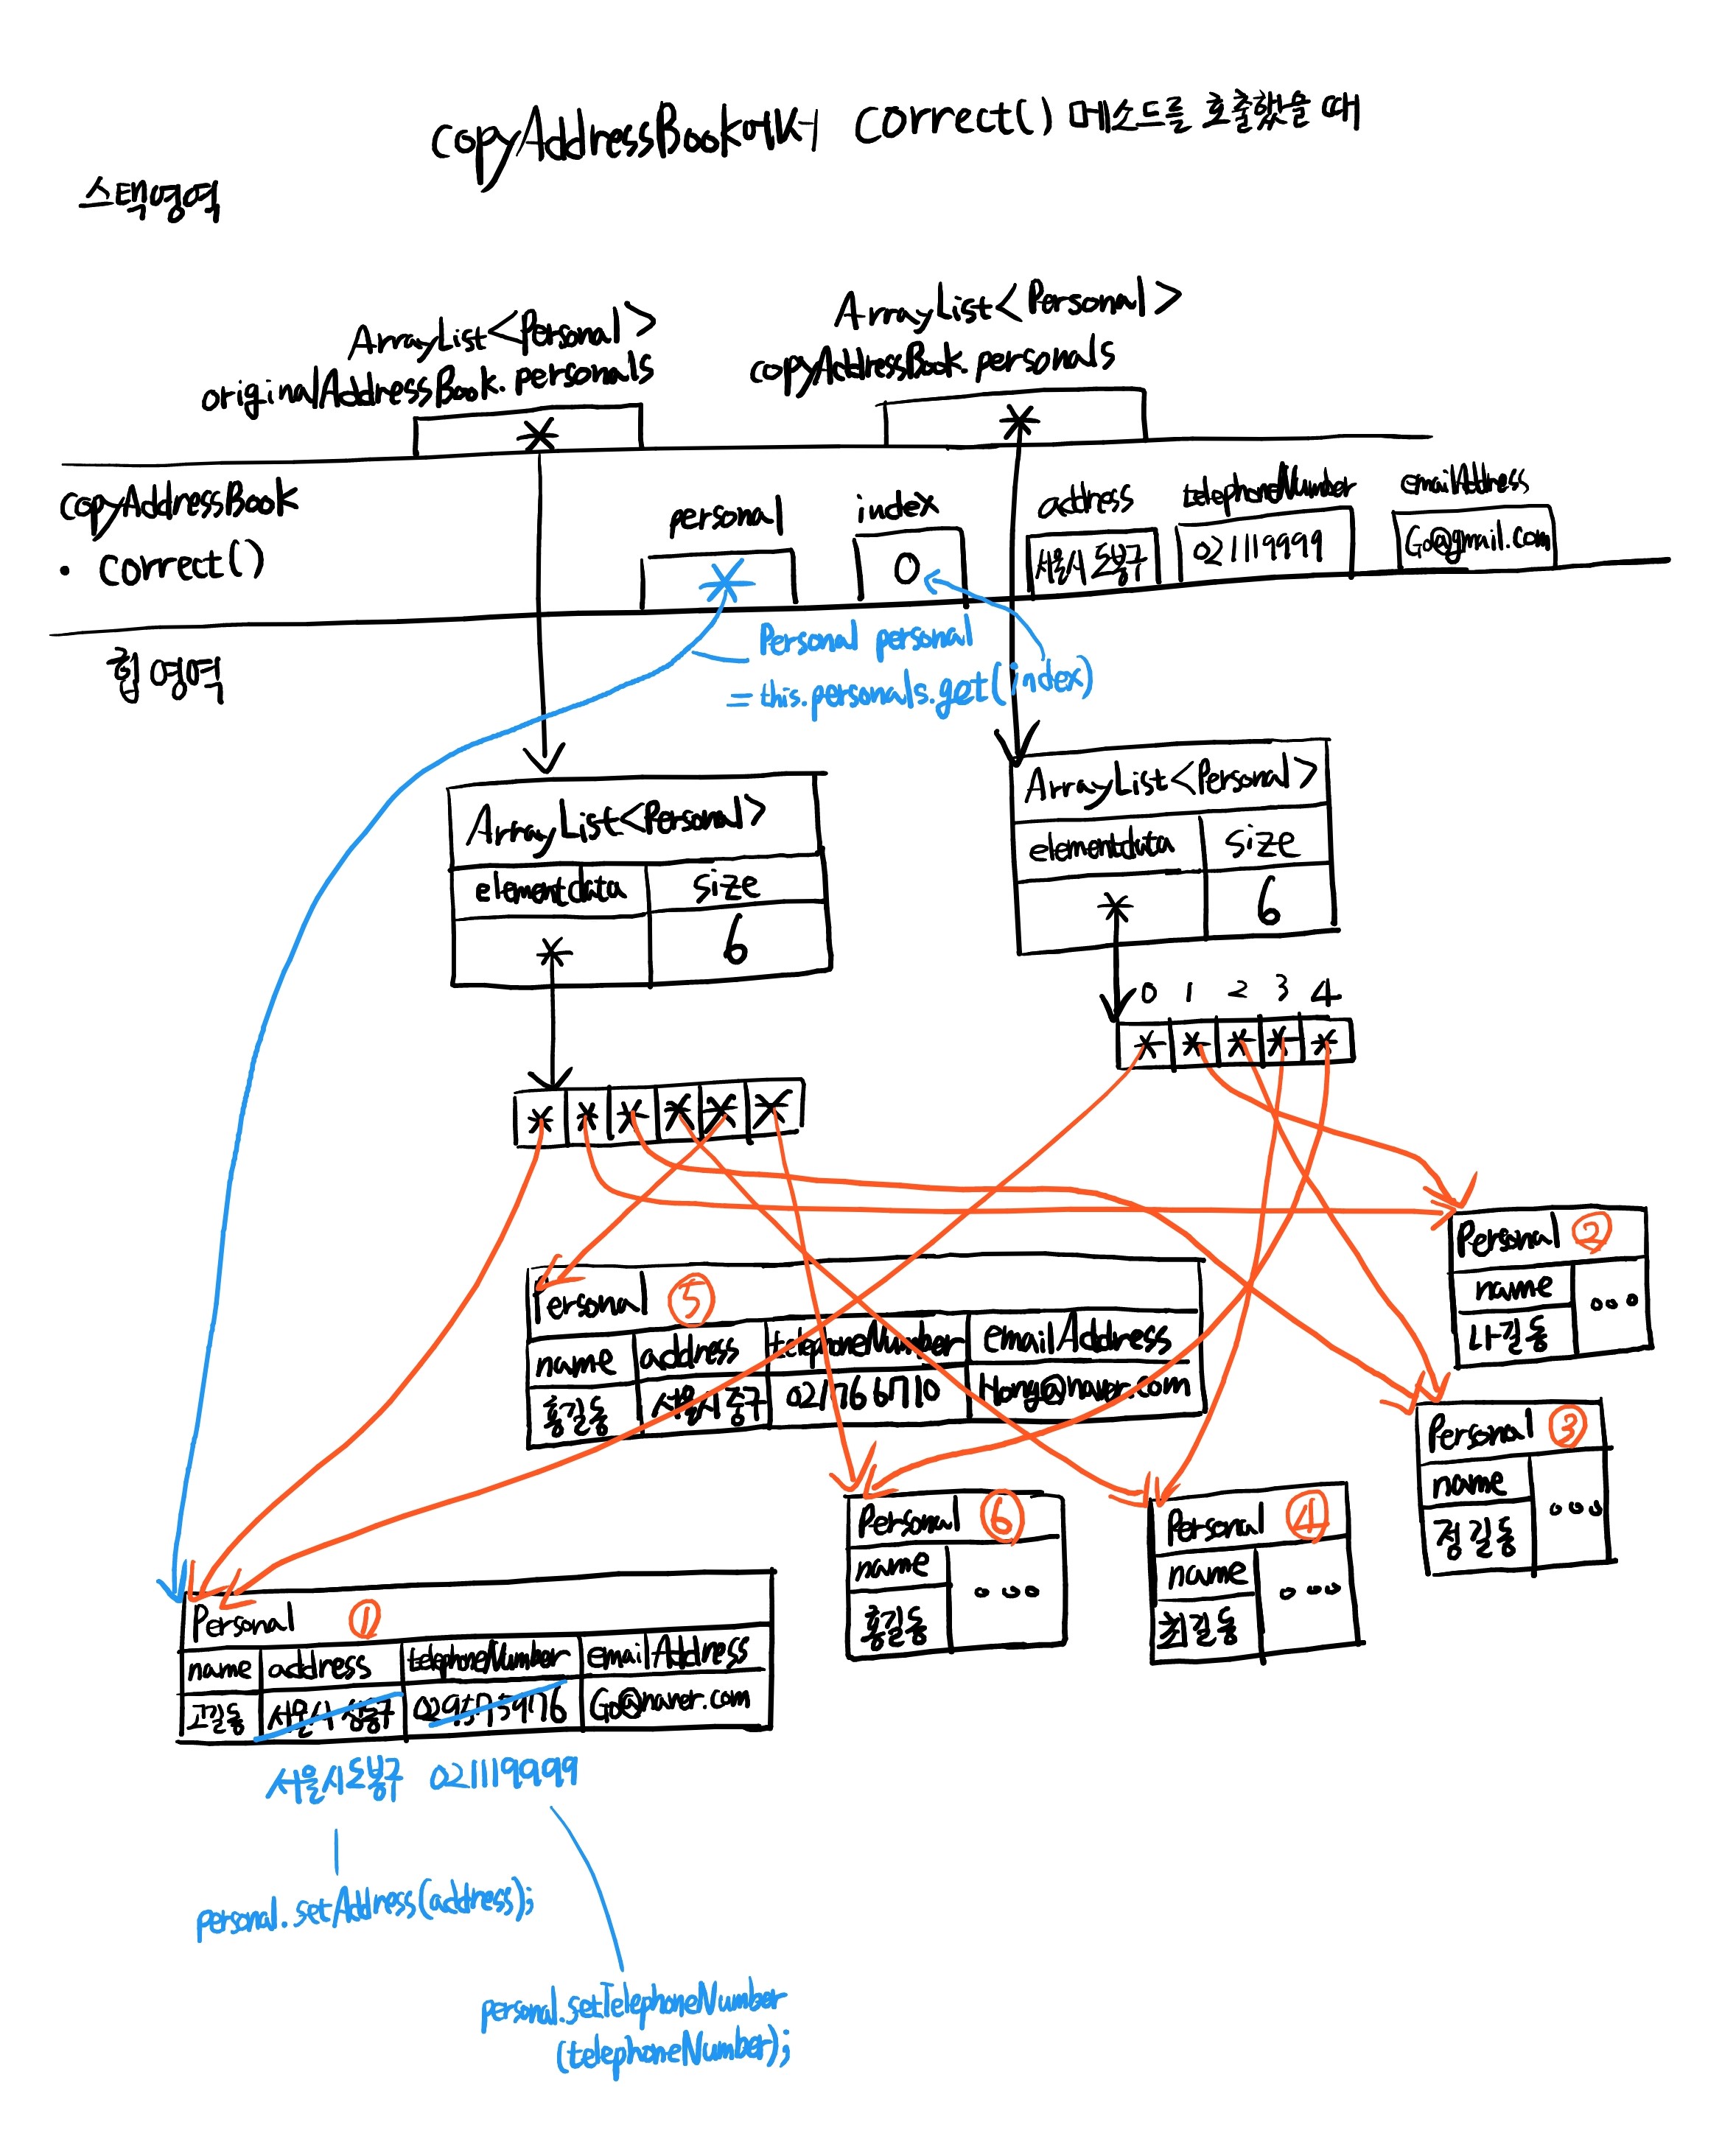 copyAddressBook에서 correct() 메소드를 호출했을 때
스택영역
ArrayList<Personal>
originalAddressBook.personals
*
ArrayList<Personal>
copyAddressBook.personals
*
copyAddressBook
• correct()
personal
*
index
0
address
서울시 도봉구
telephoneNumber
021119999
emailAddress
Go@gmail.com
힙영역
Personal personal
= this.personals.get(index)
ArrayList<Personal>
elementdata size
* 6
ArrayList<Personal>
elementdata size
* 6
0 1 2 3 4
* * * * *
* * * * * *
Personal ②
name ...
나길동
Personal ⑤
name address telephoneNumber emailAddress
홍길동 서울시 중구 Hong@naver.com
Personal ③
name ...
정길동
Personal ⑥
name ...
홍길동
Personal ④
name ...
최길동
Personal ①
name address telephoneNumber emailAddress
고길동 서울시 Go@naver.com
서울시도봉구 021119999
personal.setAddress(address);
personal.setTelephoneNumber
(telephoneNumber);